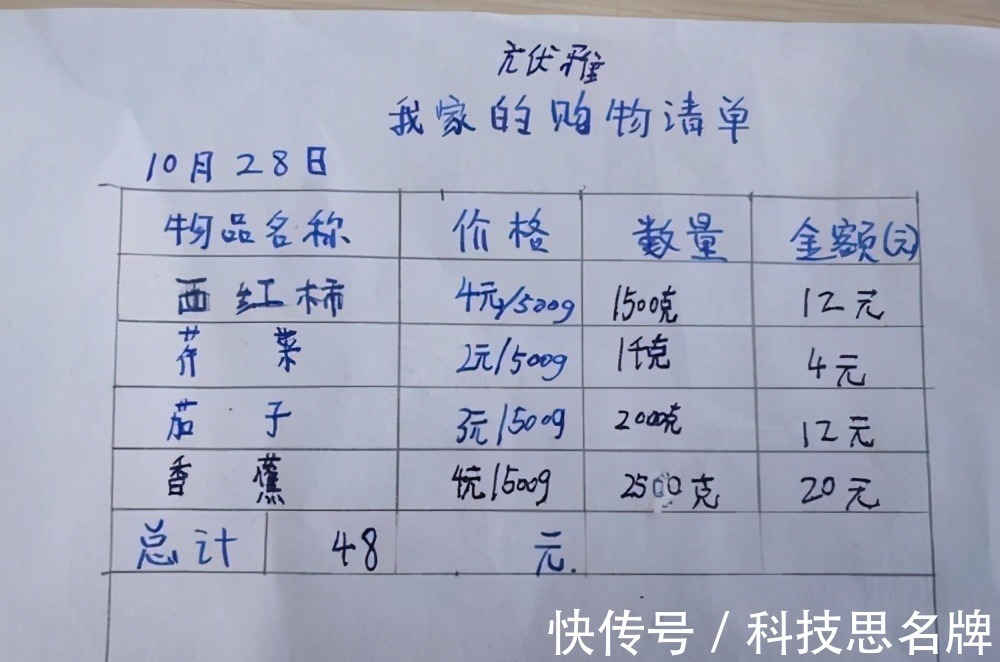 亢伏雅
我家的购物清单
10月28日
物品名称 价格 数量 金额(元)
西红柿 4元/500g 1500克 12元
芹菜 2元/500g 1千克 4元
茄子 3元/500g 2000克 12元
香蕉 4元/500g 2500克 20元
总计 48 元.
快传号 / 科技思名牌